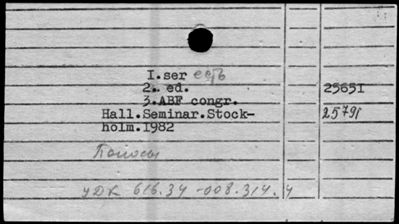 I.ser сеȓь
2. ed. 25651
3.ABF congr.
Hall.Seminar.Stock- 25791
holm.1982
Полосы
УДК 616.34-008.314.4